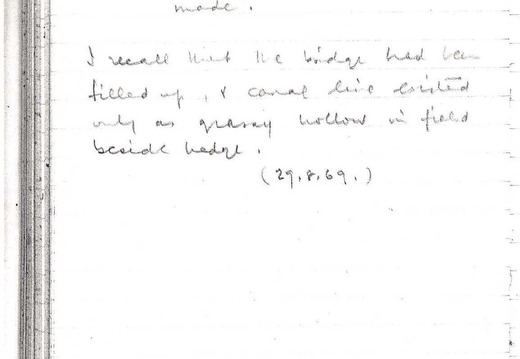 made.
I recall that the bridge had been
filled up, & canal line existed
only as grassy hollow in field
beside hedge.
(29.8.69.)